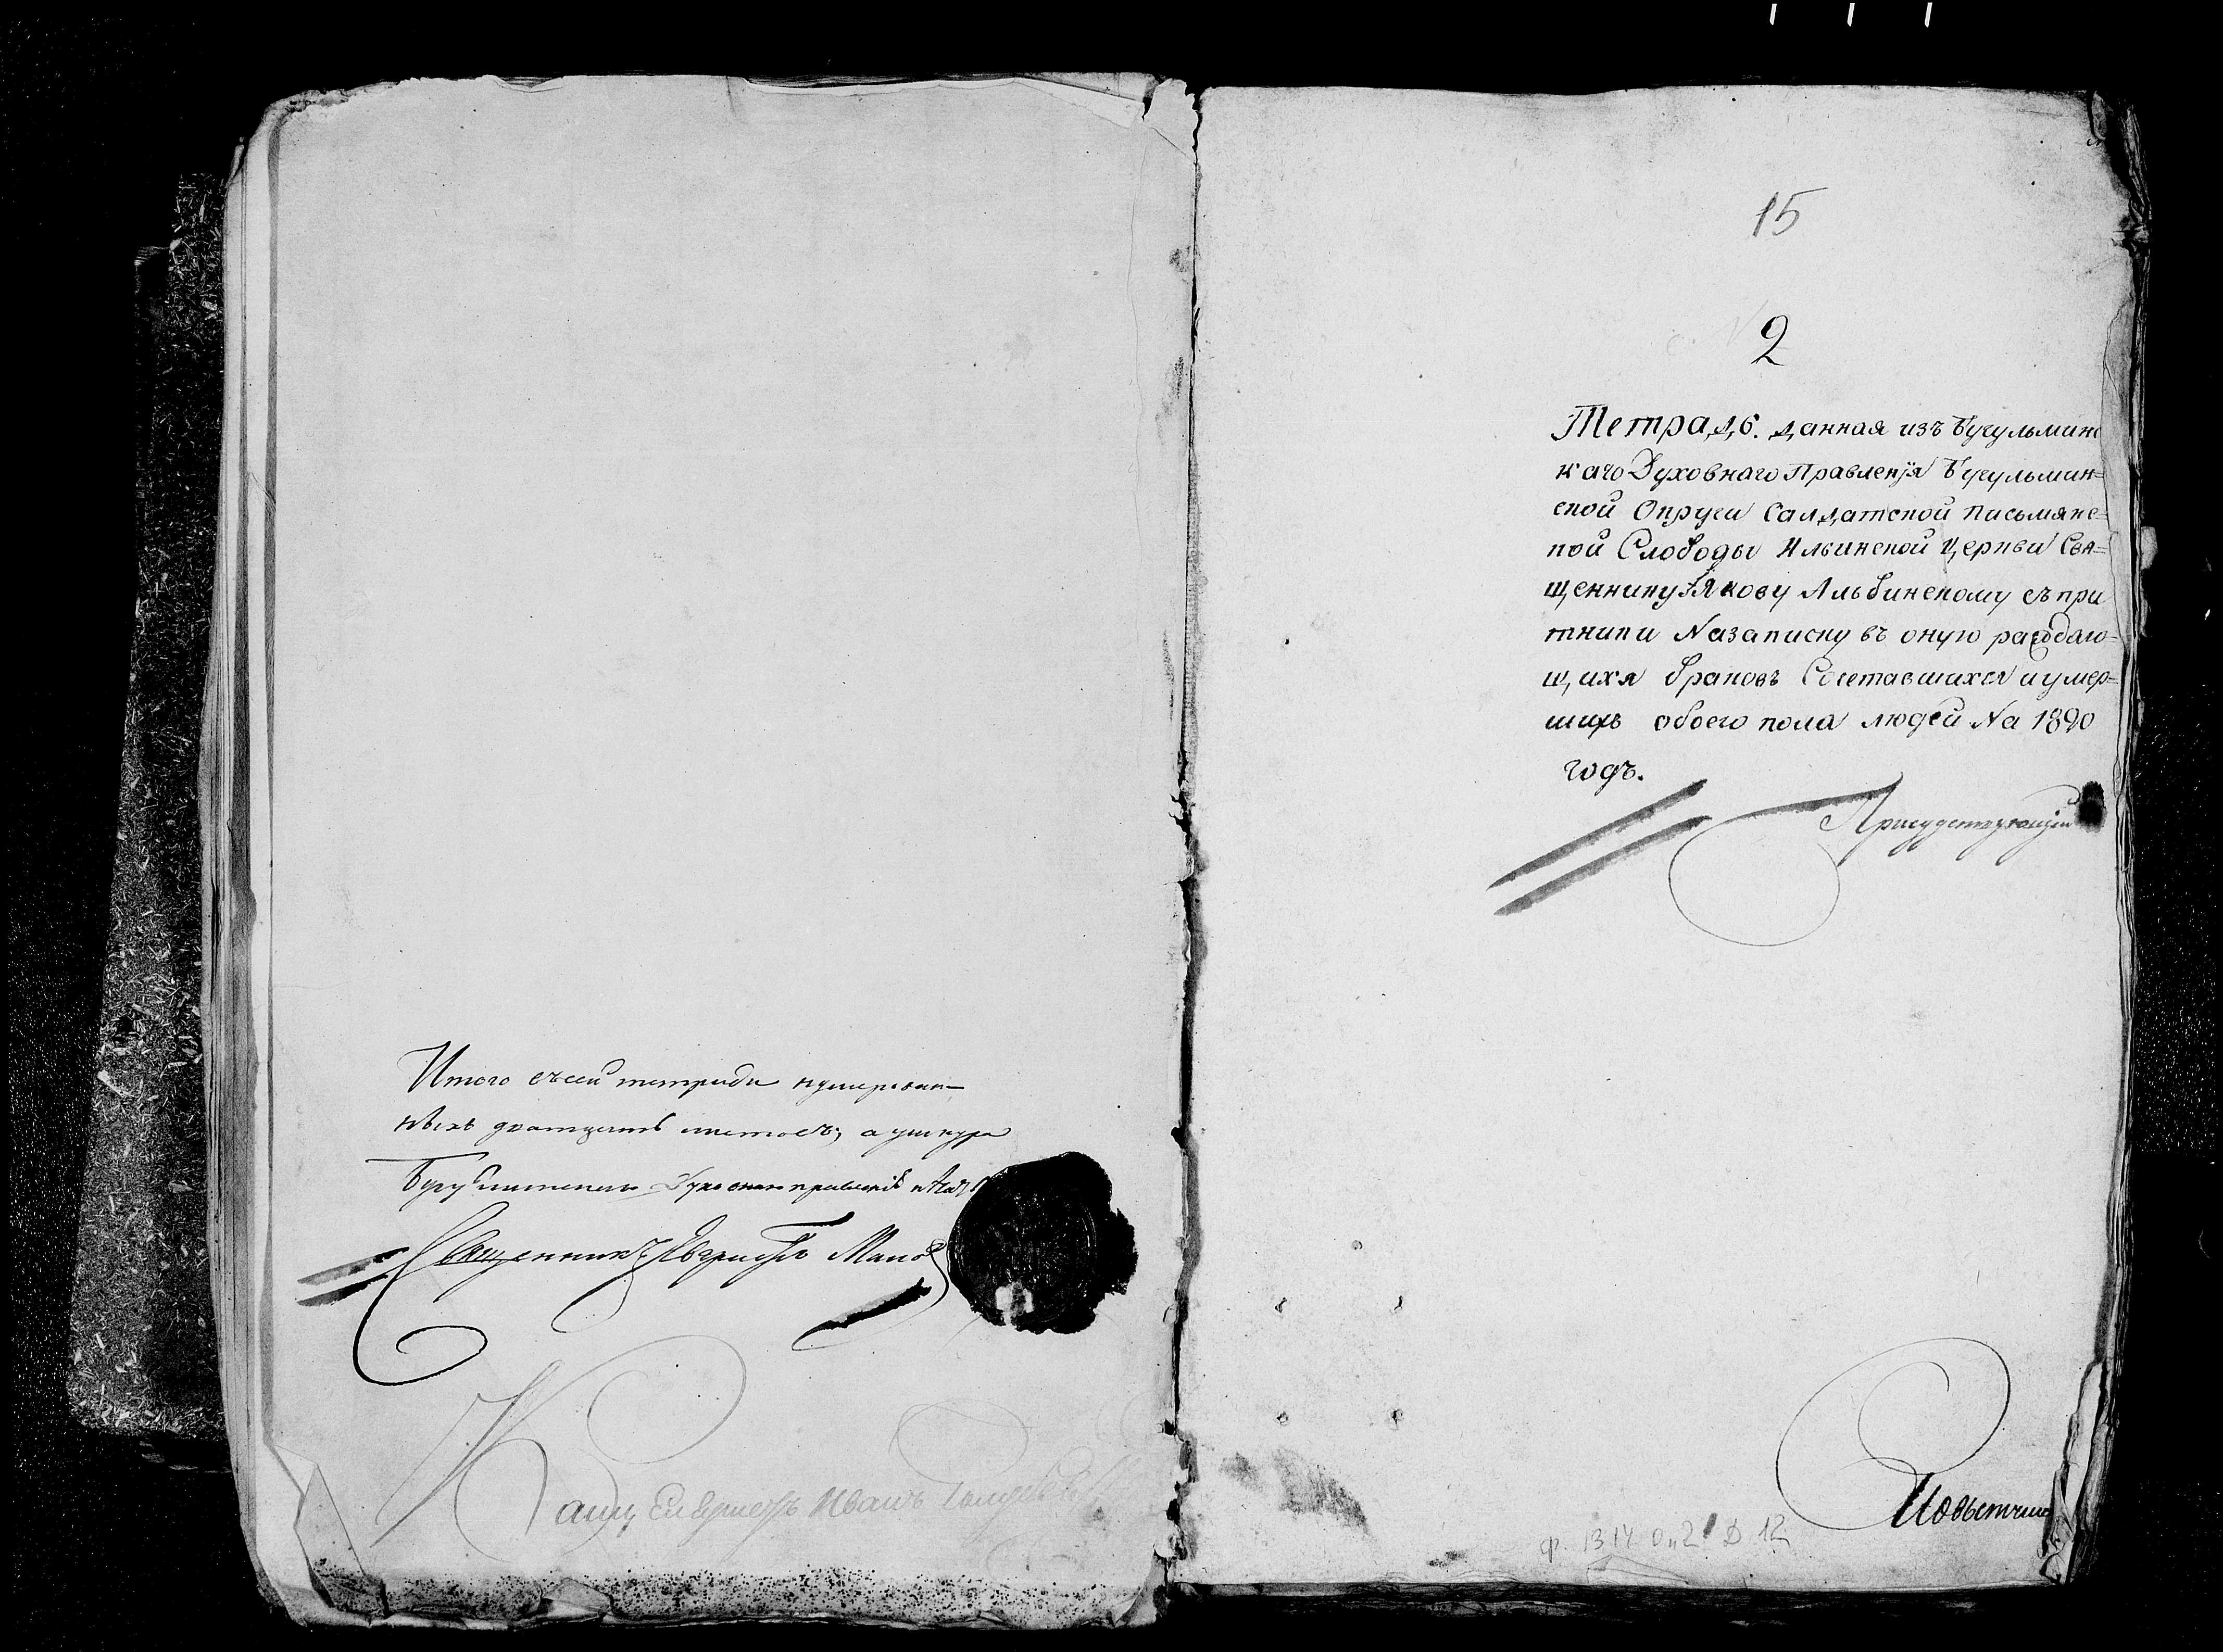 Итого въ сей тетради нумерован-
ныхъ дватцать листовъ, а у шнура
Бугульминскаго Духовнаго правленія печать
Священникъ
Канц Иванъ
15
2
Тетрадь. данная изъ Бугульминс
каго Духовнаго Правленїя Бугульмин=
ской Округи Салдатской Письмянс=
кой Слободы Ильинской Церкви Свя=
щеннику Якову Альбинскому съ при
тники На записку въ оную раждаю=
щихя браковъ Сочетавшихся и умер=
шихъ обоего пола людей На 1820
годъ.
Присудствующий
Повытчик
Ф. 1314 Оп 2 Д 12